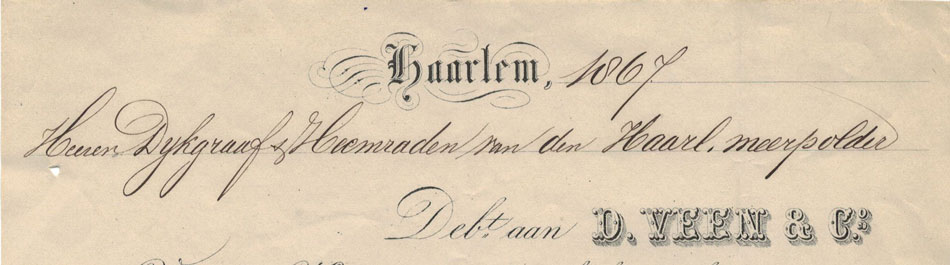 Haarlem, 1867
Heeren Dykgraaf & Heemraden van den Haarl. meerpolder
Debt. aan D. VEEN & Co.